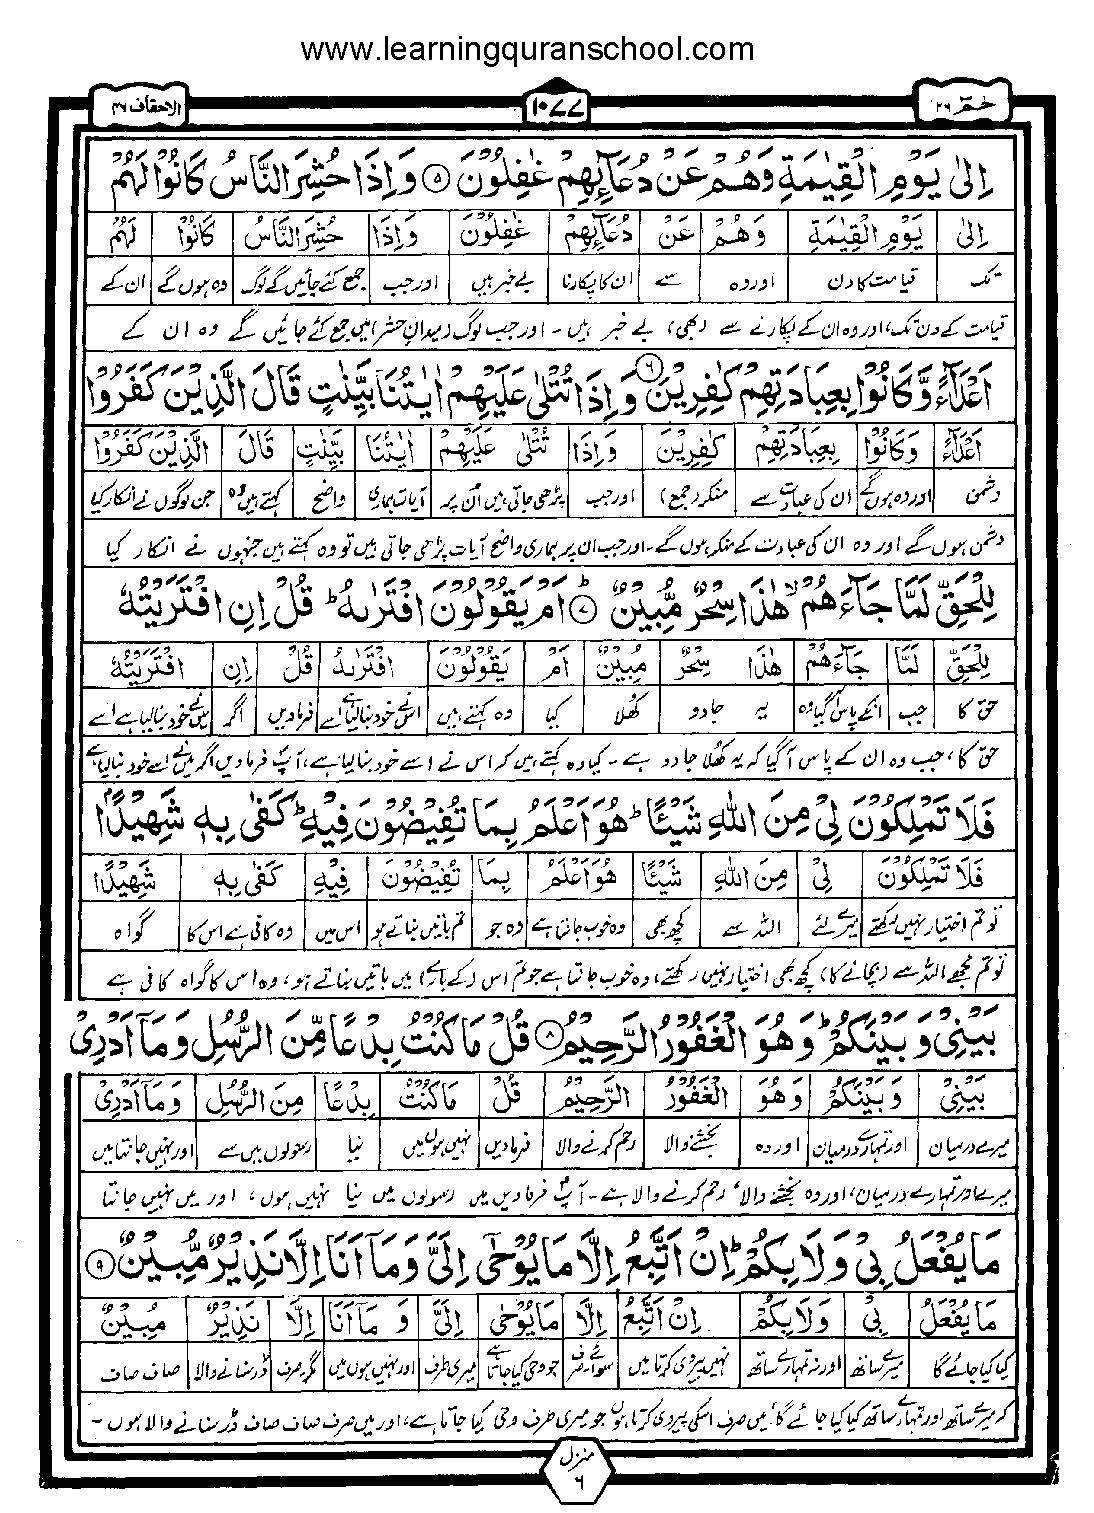 www.learningquranschool.com
حٰمٓ ٢٦
١٠٧٧
الاحقاف ٤٦
اِلٰى يَوْمِ الْقِيٰمَةِ وَهُمْ عَنْ دُعَآئِهِمْ غٰفِلُوْنَ ۝٥ وَاِذَا حُشِرَ النَّاسُ كَانُوْا لَهُمْ
اِلٰى يَوْمِ الْقِيٰمَةِ وَهُمْ عَنْ دُعَآئِهِمْ غٰفِلُوْنَ وَاِذَا حُشِرَ النَّاسُ كَانُوْا لَهُمْ
تک قیامت کا دن اور وہ سے ان کا پکارنا بے خبر ہیں اور جب جمع کئے جائیں گے لوگ وہ ہوں گے ان کے
قیامت کے دن تک، اور وہ ان کے پکارنے سے (بھی) بے خبر ہیں۔ اور جب لوگ (میدانِ حشر) میں جمع کئے جائیں گے وہ ان کے
اَعْدَآءً وَّكَانُوْا بِعِبَادَتِهِمْ كٰفِرِيْنَ ۝٦ وَاِذَا تُتْلٰى عَلَيْهِمْ اٰيٰتُنَا بَيِّنٰتٍ قَالَ الَّذِيْنَ كَفَرُوْا
اَعْدَآءً وَكَانُوْا بِعِبَادَتِهِمْ كٰفِرِيْنَ وَاِذَا تُتْلٰى عَلَيْهِمْ اٰيٰتُنَا بَيِّنٰتٍ قَالَ الَّذِيْنَ كَفَرُوْا
دشمن اور وہ ہوں گے ان کی عبادت سے منکر (جمع) اور جب پڑھی جاتی ہیں ان پر آیات ہماری واضح کہتے ہیں وہ جن لوگوں نے انکار کیا
دشمن ہوں گے اور وہ ان کی عبادت کے منکر ہوں گے۔ اور جب ان پر ہماری واضح آیات پڑھی جاتی ہیں تو وہ کہتے ہیں جنہوں نے انکار کیا
لِلْحَقِّ لَمَّا جَآءَهُمْ ۙ هٰذَا سِحْرٌ مُّبِيْنٌ ۝٧ اَمْ يَقُوْلُوْنَ افْتَرٰىهُ ۖ قُلْ اِنِ افْتَرَيْتُهٗ
لِلْحَقِّ لَمَّا جَآءَهُمْ هٰذَا سِحْرٌ مُبِيْنٌ اَمْ يَقُوْلُوْنَ افْتَرٰىهُ قُلْ اِنِ افْتَرَيْتُهٗ
حق کا جب انکے پاس آگیا وہ یہ جادو کھلا کیا وہ کہتے ہیں اس نے خود بنالیا ہے اسے فرمادیں اگر میں نے خود بنالیا ہے اسے
حق کا، جب وہ ان کے پاس آگیا کہ یہ کھلا جادو ہے۔ کیا وہ کہتے ہیں کہ اس نے اسے خود بنالیا ہے، آپؐ فرمادیں اگر میں نے اسے خود بنالیا ہے
فَلَا تَمْلِكُوْنَ لِيْ مِنَ اللّٰهِ شَيْـًٔا ۖ هُوَ اَعْلَمُ بِمَا تُفِيْضُوْنَ فِيْهِ ۖ كَفٰى بِهٖ شَهِيْدًاۢ
فَلَا تَمْلِكُوْنَ لِيْ مِنَ اللّٰهِ شَيْـًٔا هُوَ اَعْلَمُ بِمَا تُفِيْضُوْنَ فِيْهِ كَفٰى بِهٖ شَهِيْدًا
تو تم اختیار نہیں رکھتے میرے لئے اللہ سے کچھ بھی وہ خوب جانتا ہے وہ جو تم باتیں بناتے ہو اس میں وہ کافی ہے اس کا گواہ
تو تم مجھے اللہ سے (بچانے کا) کچھ بھی اختیار نہیں رکھتے، وہ خوب جانتا ہے جو تم اس (کے بارے) میں باتیں بناتے ہو، وہ اس کا گواہ کافی ہے
بَيْنِيْ وَبَيْنَكُمْ ۖ وَهُوَ الْغَفُوْرُ الرَّحِيْمُ ۝٨ قُلْ مَا كُنْتُ بِدْعًا مِّنَ الرُّسُلِ وَمَآ اَدْرِيْ
بَيْنِيْ وَبَيْنَكُمْ وَهُوَ الْغَفُوْرُ الرَّحِيْمُ قُلْ مَا كُنْتُ بِدْعًا مِنَ الرُّسُلِ وَمَآ اَدْرِيْ
میرے درمیان اور تمہارے درمیان اور وہ بخشنے والا رحم کرنے والا فرمادیں نہیں ہوں میں نیا رسولوں میں سے اور نہیں جانتا میں
میرے اور تمہارے درمیان، اور وہ بخشنے والا، رحم کرنے والا ہے۔ آپؐ فرمادیں میں رسولوں میں نیا نہیں ہوں، اور میں نہیں جانتا
مَا يُفْعَلُ بِيْ وَلَا بِكُمْ ۖ اِنْ اَتَّبِعُ اِلَّا مَا يُوْحٰٓى اِلَيَّ وَمَآ اَنَا اِلَّا نَذِيْرٌ مُّبِيْنٌ ۝٩
مَا يُفْعَلُ بِيْ وَلَا بِكُمْ اِنْ اَتَّبِعُ اِلَّا مَا يُوْحٰى اِلَيَّ وَ مَآ اَنَا اِلَّا نَذِيْرٌ مُبِيْنٌ
کیا کیا جائے گا میرے ساتھ اور نہ تمہارے ساتھ نہیں پیروی کرتا میں سوائے صرف جو وحی کیا جاتا ہے میری طرف اور نہیں ہوں میں مگر صرف ڈر سنانے والا صاف صاف
کہ میرے ساتھ اور تمہارے ساتھ کیا کیا جائے گا، میں صرف اسکی پیروی کرتا ہوں جو میری طرف وحی کیا جاتا ہے، اور میں صرف صاف صاف ڈر سنانے والا ہوں۔
منزل
٦